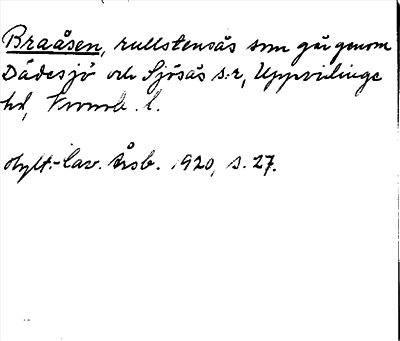 Braåsen, rullstensås som går genom
Dädesjö och Sjösås s:r, Uppvidinge
hd, Kronob. l.
Hylt.-Cav. Årsb. 1920, s. 27.